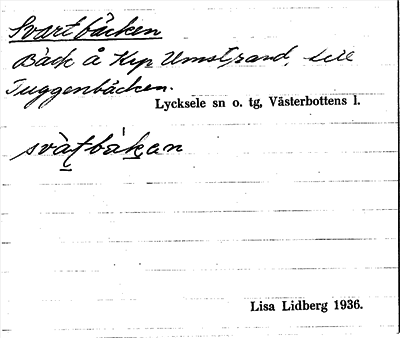 Svartbäcken
Bäck å Krp Umstrand, till
Tuggenbäcken.
Lycksele sn o. tg, Västerbottens l.
svàṭbákan
Lisa Lidberg 1936.